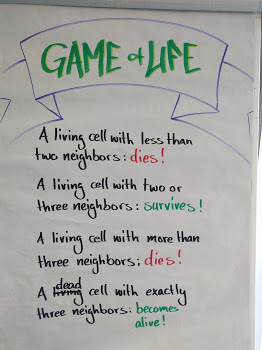 GAME of LIFE
A living cell with less than
two neighbors: dies!
A living cell with two or
three neighbors: survives!
A living cell with more than
three neighbors: dies!
dead
A living cell with exactly
three neighbors: becomes
alive!